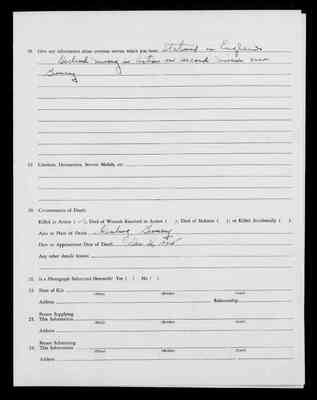 18. Give any information about overseas service which you have: Stationed in England
Declared missing in Action on second mission over
Germany
19. Citations, Decorations, Service Medals, etc.
20. Circumstances of Death:
Killed in Action ( ); Died of Wounds Received in Action ( ); Died of Sickness ( ); or Killed Accidentally ( )
Area or Place of Death Germany
Date or Approximate Date of Death
Any other details known:
21. Is a Photograph Submitted Herewith? Yes ( ) No ( )
22. Next of Kin
(First) (Middle) (Last)
Address Relationship
Person Supplying
23. This Information
(First) (Middle) (Last)
Address
Person Submitting
24. This Information
(First) (Middle) (Last)
Address